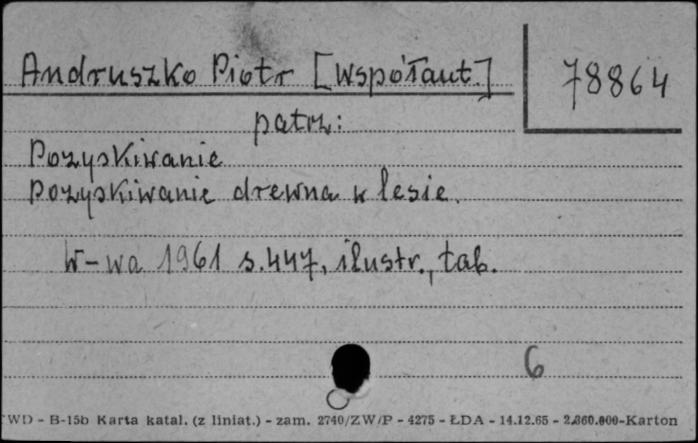 Andruszko Piotr [Współaut.]
78864
patrz:
Pozyskiwanie
Pozyskiwanie drewna w lesie.
W-wa 1961 s.447, ilustr., tab.
6
WD - B-15b Karta katal. (z liniat.) - zam. 2740/ZW/P - 4275 - ŁDA - 14.12.65 - 2.360.000-Karton